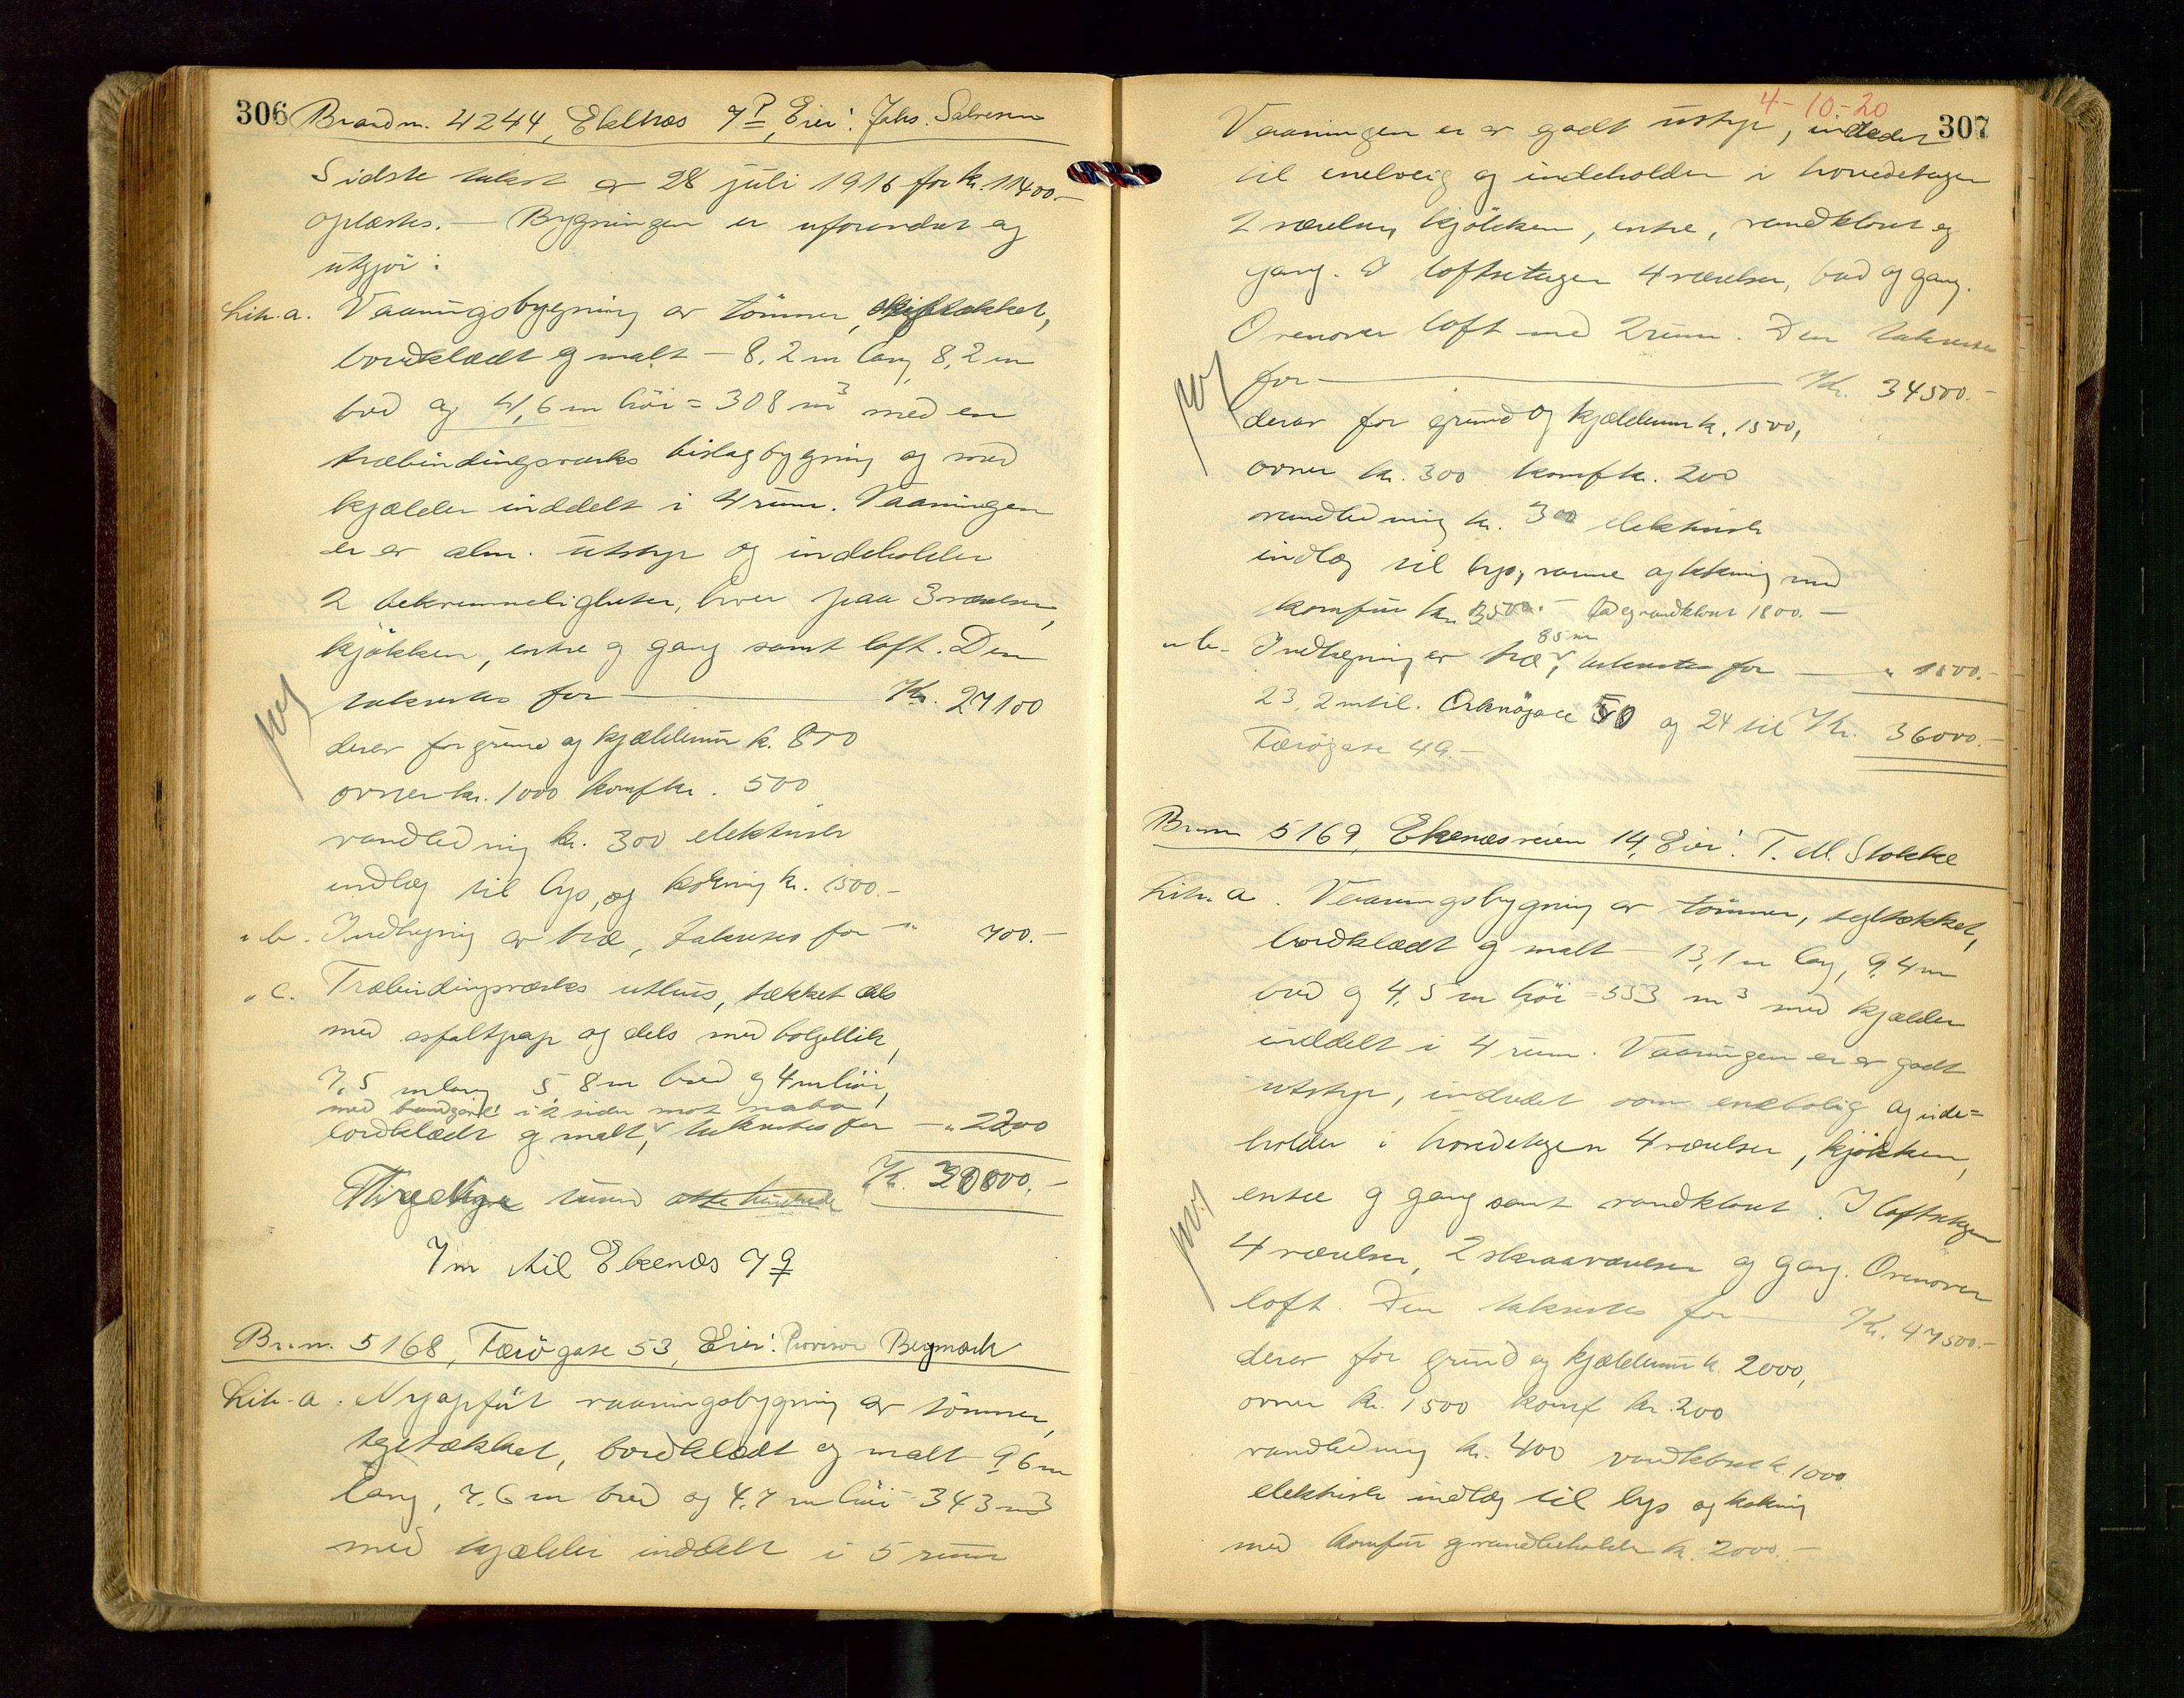 306 Brandn. 4244, Ekenæs 7P, Eier: Johs. Salvesen
Sidste takst er 28 juli 1916 for kr. 11400.-
oplæstes. — Bygningen er uforandret og
utgjør:
Litr. a. Vaaningsbygning av tømmer, skiftækket,
bordklædt og malt – 8,2 m lang 8,2 m
bred og 4,6 m høi = 308 m3 med en
træbindingsværks bislagbygning og med
kjælder inddelt i 4 rum. Vaaningen
er av alm. utstyr og indeholder
2 bekvemmeligheter, hver paa 3 værelser,
kjøkken, entre og gang samt loft. Den
taksertes for — Kr. 27100
derav for grund og kjældermur k. 800
ovner kr. 1000 komf kr. 500
vandledning kr. 300 elektrisk
indlæg til lys, og kokning kr. 1500.-
" b. Indhegning av træ, takseres for — " 700.-
" c. Træbindingsværks uthus, tækket dels
med asfaltpap og dels med bølgeblik,
7,5 m lang 5 8 m bred og 4 m høi,
med brandgavl i 2 sider mot nabo
bordklædt og malt, takseres for — " 2200
Kr. 30000.-
tusind otte hundrede
7 m til Ekenæs 79
Br.n. 5168, Færøgate 53, Eier: Provisor Bergmark
Litr. a. Nyopført vaaningsbygning av tømmer,
tegltækket, bordklædt og malt 9,6 m
lang, 7,6 m bred og 4,7 m høi = 343 m3
med kjælder inddelt i 5 rum
4-10-20
307
Vaaningen er av godt utstyr, indredet
til enebolig og indeholder i hovedetagen
2 værelser, kjøkken, entre, vandkloset og
gang. I loftsetagen 4 værelser, bad og gang.
Ovenover loft med 2 rum. Den takseres
for — Kr. 34500.-
derav for grund og kjældermur k. 1500,
ovner kr. 300 komf kr. 200
vandledning kr. 300 elektrisk
indlæg til lys, varme og kokning med
komfur kr. 3500.- Bad og vandklosett 1800.-
85 m
" b. Indhegning av træ, takseres for — " 1500.-
23,2 m til Orknøgate 50 og 24 til Kr. 36000.-
Færøgate 49.-
Br.nr 5169, Ekenæsveien 14, Eier: T. M. Stokke
Litr. a. Vaaningsbygning av tømmer, tegltækket,
bordklædt og malt – 13,1 m lang, 9,4 m
bred og 4,5 m høi = 553 m3 med kjælder
inddelt i 4 rum. Vaaningen er av godt
utstyr, indredet som enebolig og inde=
holder i hovedetagen 4 værelser, kjøkken,
entre og gang samt vandklosett. I loftsetagen
4 værelser, 2 skraaværelser og gang. Ovenover
loft. Den takseres for — Kr. 47500.-
derav for grund og kjældermur k. 2000,
ovner kr. 1500 komf kr. 200
vandledning kr. 400 vandklosett k. 1000
elektrisk indlæg til lys og kokning
med komfur og vandbeholder k. 2000.-